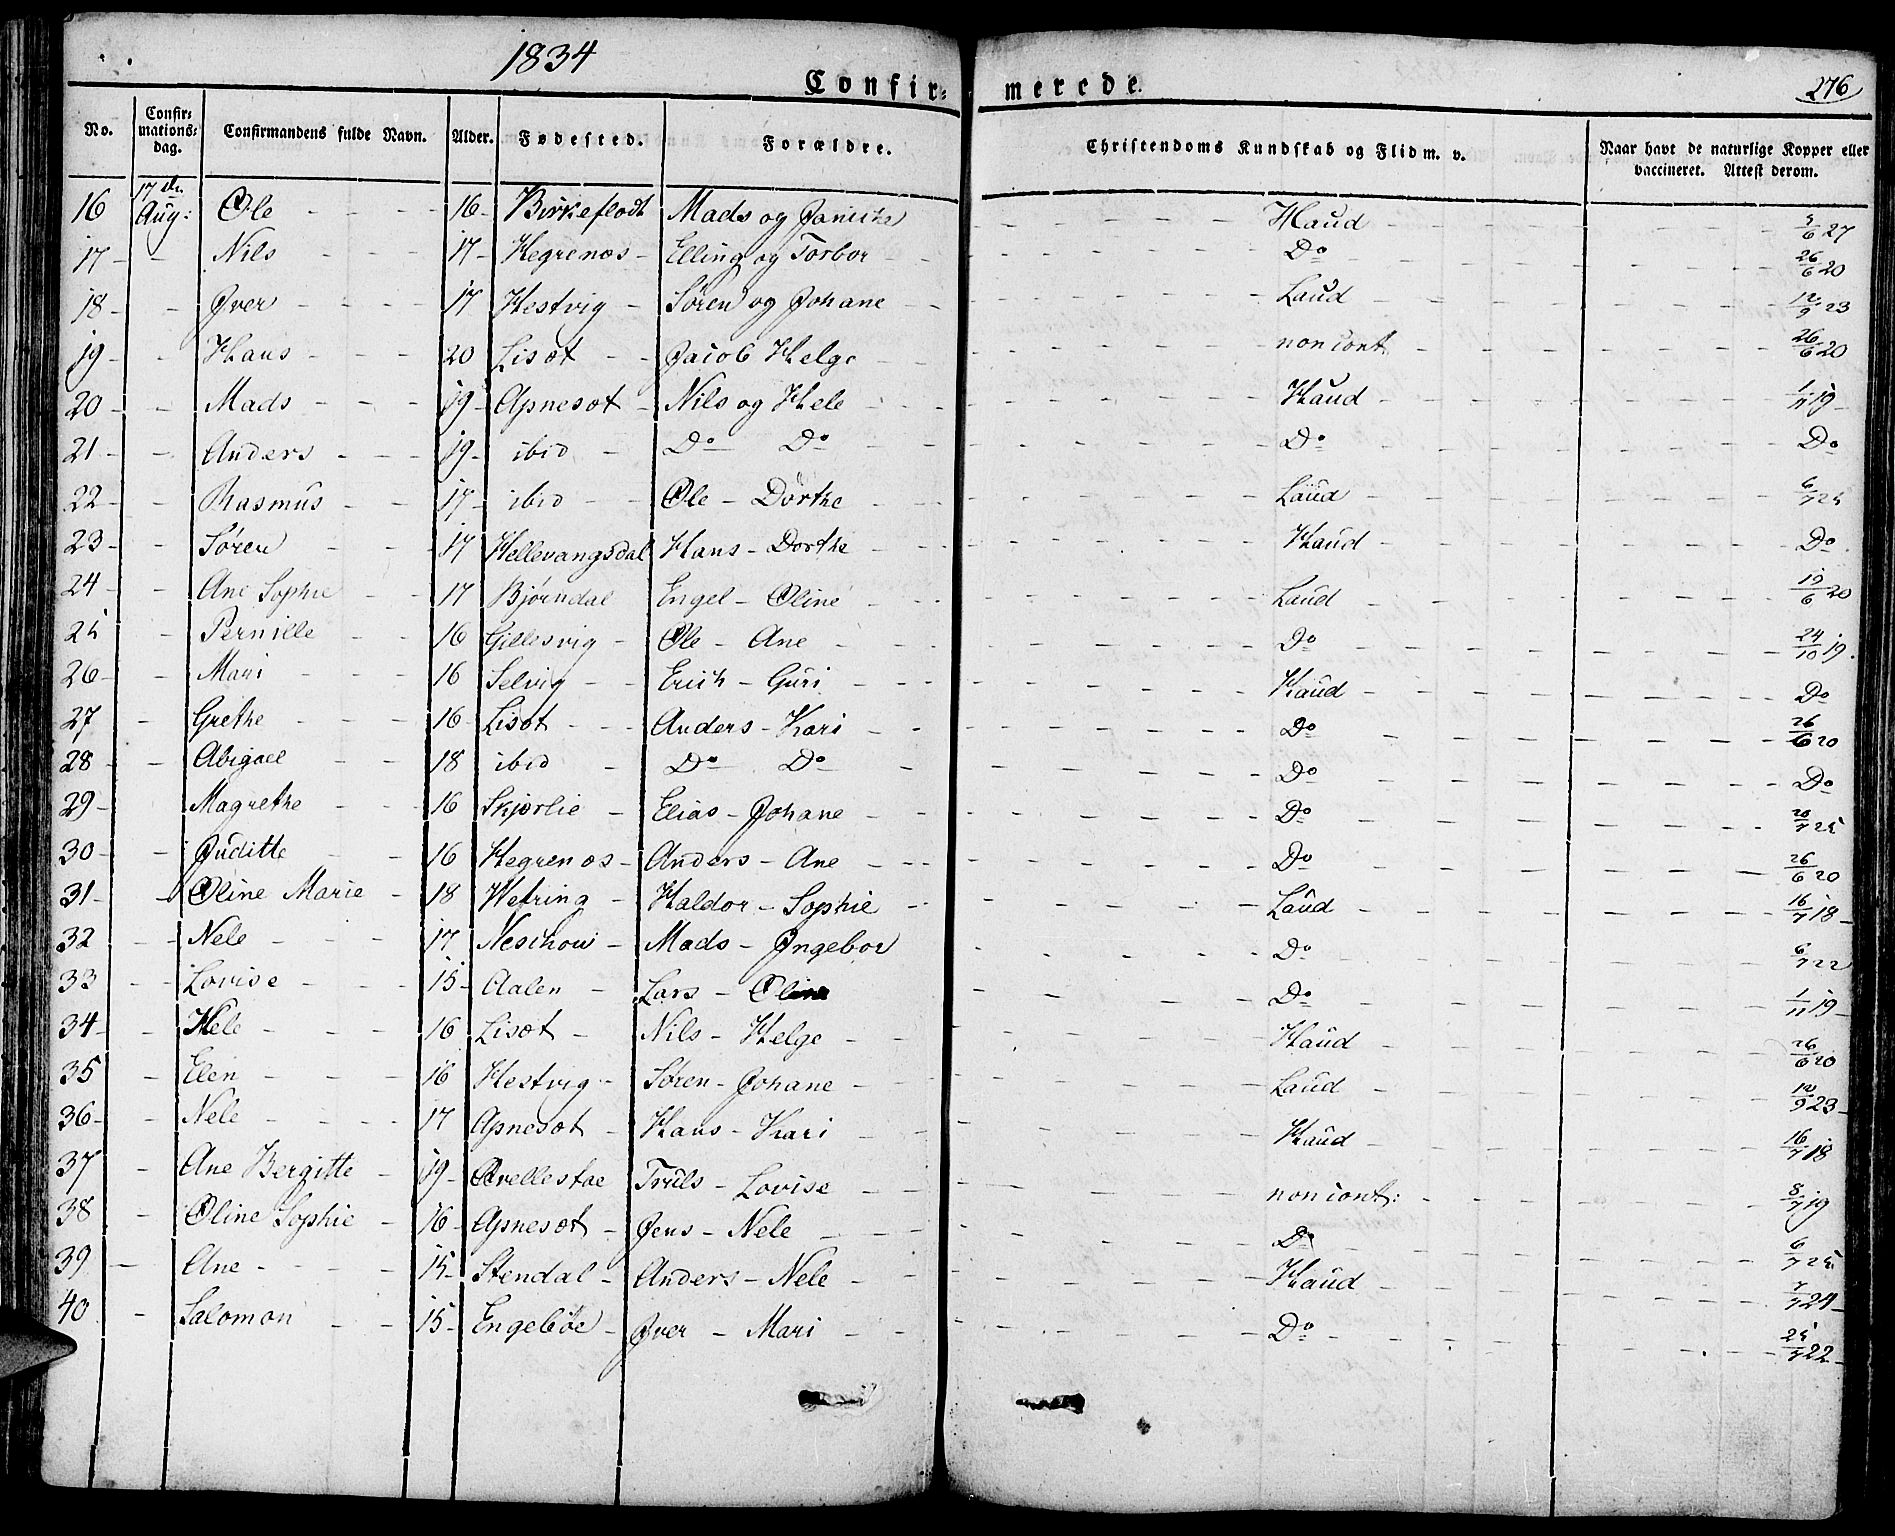 1834
Confir= merede. 276
No. Confir= mations= dag. Confirmandens fulde Navn. Alder. Fødested. Forældre. Christendoms Kundskab og Flid m. v. Naar havt de naturlige Kopper eller vaccineret. Attest derom.
16 17de Aug: Ole - - - 16 - Birkeflodt Mads og Janiche Haud - - - 5/6 27
17 - - Nils - - - 17 - Hegrenæs - Elling og Torbor - Do - - - 26/6 20
18 - - Iver - - - 17 Hestvig - Søren og Johane - Laud - - - 12/9 23
19 - - Hans - - - 20 Lisæt - - Jacob Helge non cont - - - 26/6 20
20 - - Mads - - - 19 - Apnesæt - Nils og Hele - - Haud - - - 1/11 19 -
21 - - Anders - - - 19 - ibid - Do Do - - Do - - - Do
22 - - Rasmus - - 17 - ibid - - Ole - Dorthe - - Laud - - - 6/7 25
23 - - Søren - - - 17 Hellevangsdal Hans - Dorthe - - Haud - - - Do
24 - - Ane Sophie - - 17 Bjørndal Engel - Oline - - Laud - - - 19/6 20
25 - Pernille - - 16 Gillesvig - Ole - Ane - - Do - - - 24/10 19.
26 - - Mari - - - 16 Selvig - - Erich - Guri - - Haud - - - Do
27 - Grethe - - - 16 - Lisæt - - Anders - Kari - - Do - - - 26/6 20
28 - - Abigael - - 18 ibid - Do Do - Do - - - Do
29 - - Magrethe - - - 16 Skjorlie - Elias - Johane - - Do - - - 20/7 25
30 - - Juditte - - 16 Hegrenæs - Anders - Ane - - Do - - - 26/6 20
31 - - Oline Marie - 18 Hetring - Haldor - Sophie - - Laud - - - 16/7 18 -
32 - - Nele - - - 17. Neschow - Mads - Ingebor Do - - - 6/7 22
33 - - Lovise - - - 15 - Aalen - Lars - Oline Do - - - 1/11 19 -
34 - - Hele - - - 16 Lisæt - Nils - Helge - - Haud - - - 26/6 20
35 - Elen - - - 16 Hestvig - Søren - Johane - - Laud - - - 12/9 23 -
36 - - Nele - - - 17 Apnesæt - Hans - Kari - - Haud - - - 16/7 18
37 - Ane Bergitte - 19 - Qvellestae Truls - Lovise - - non cont: - - - 8/7 19
38 - Oline Sophie - 16 - Apnesæt - Jens - Nele - - Do - - - 6/7 25
39 - Ane - - - 15 - Stendal - Anders - Nele - - Haud - - - 7/7 24 -
40 - Salomon - - 15 - Engebøe - Iver - Mari - - Do - - - 25/7 22 -